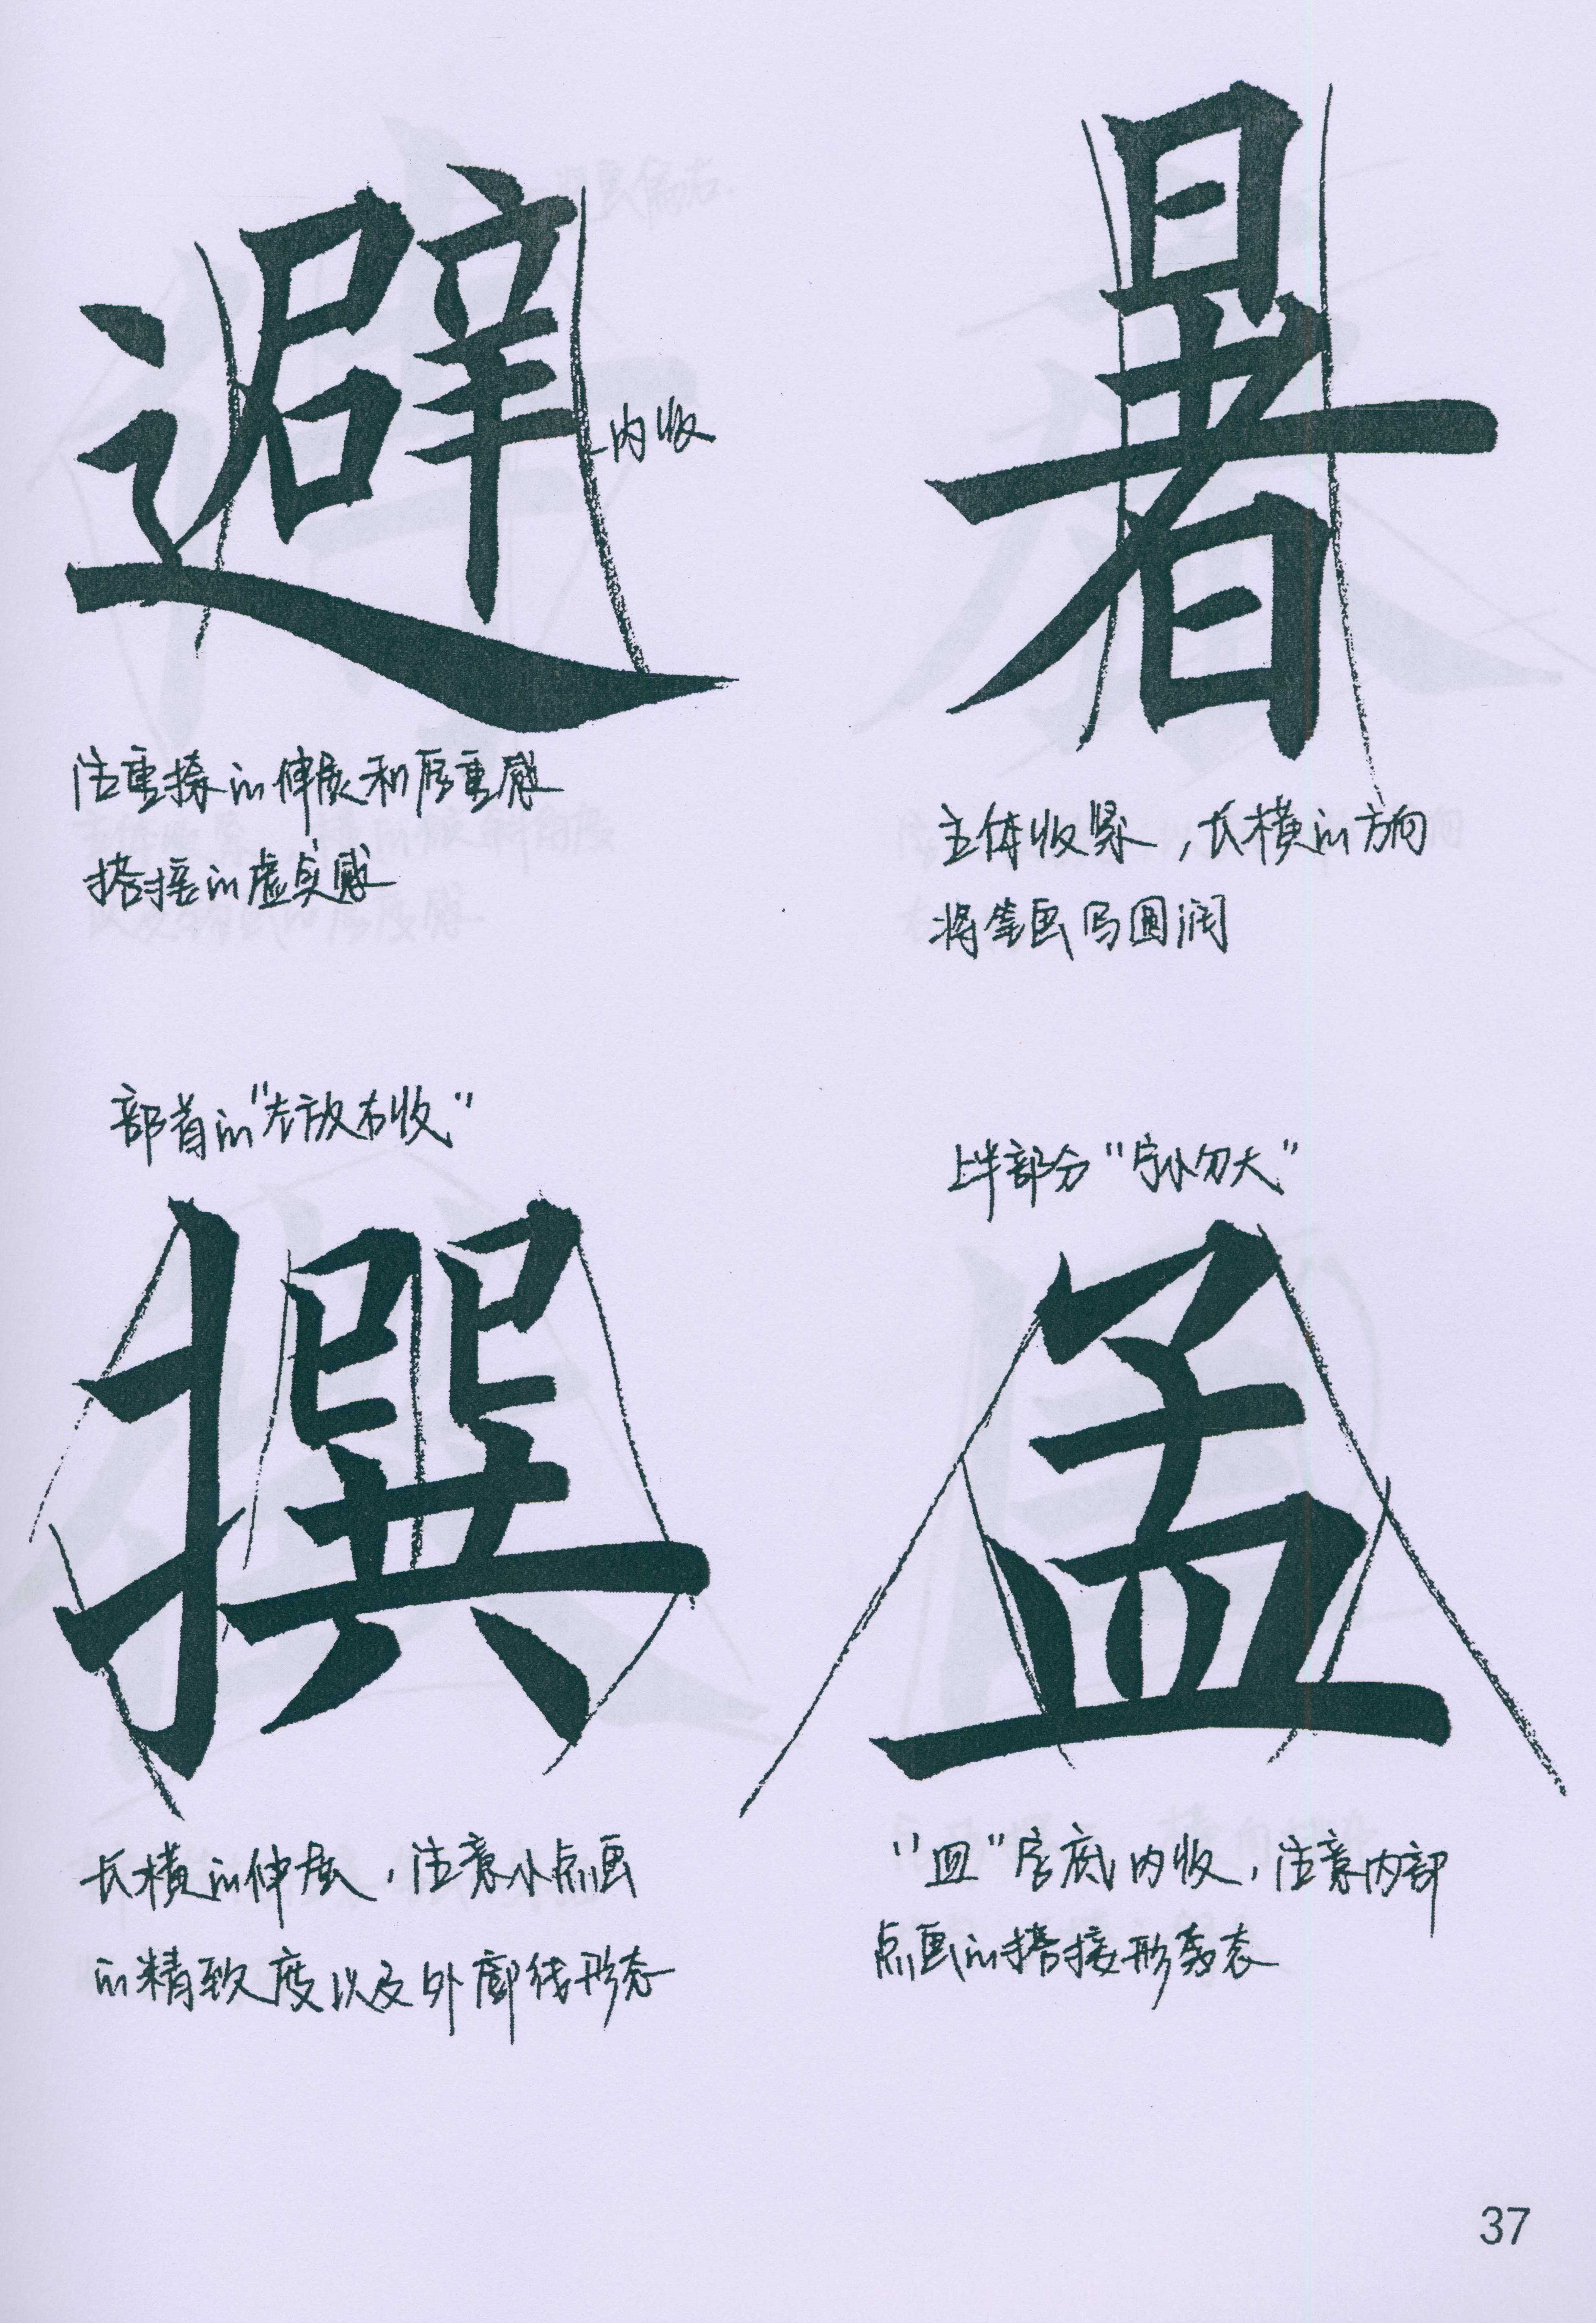 避
内收
注重捺的伸展和厚重感
搭接的虚实感
暑
主体收紧，长横的方向
将笔画写圆润
部首的"左放右收"
撰
长横的伸展，注意小点画
的精致度以及外廓线形态
上半部分"宁小勿大"
孟
"皿"字底内收，注意内部
点画的搭接形态
37